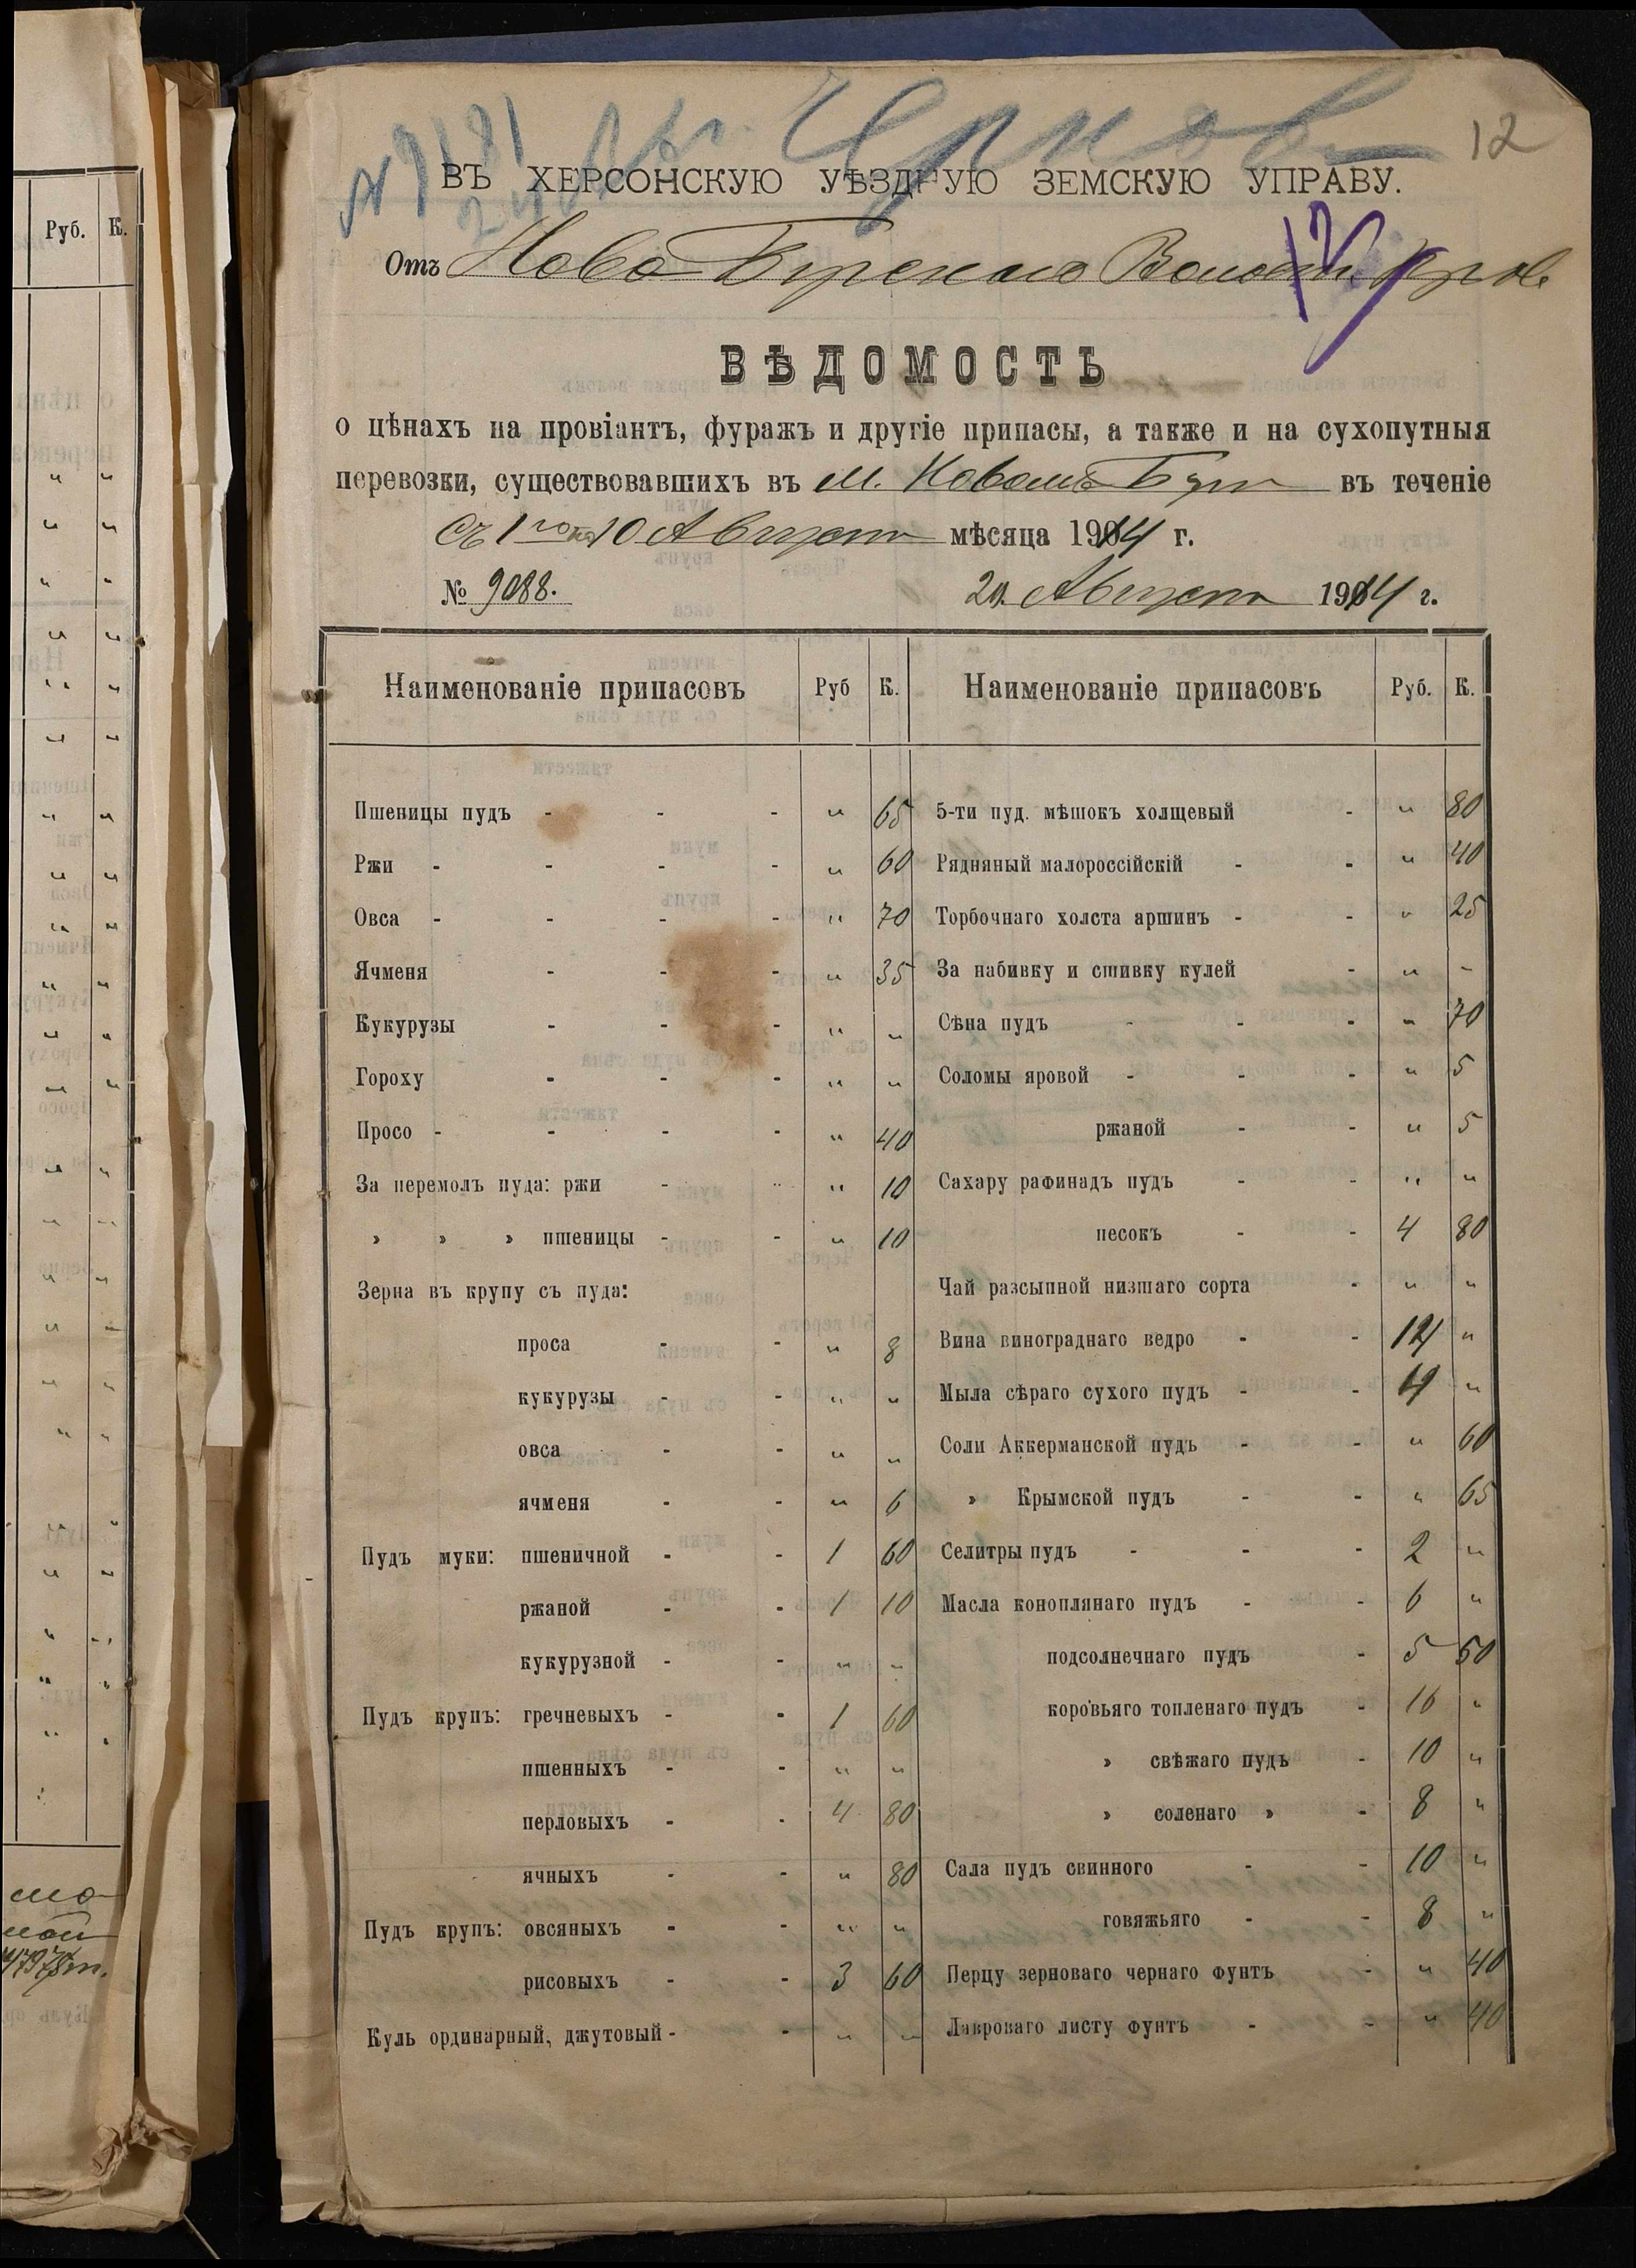 12
№ 9181
ВЪ ХЕРСОНСКУЮ УѢЗДНУЮ ЗЕМСКУЮ УПРАВУ.
Отъ Ново Бугскаго Волост. Правл.
ВѢДОМОСТЬ
о цѣнахъ на провіантъ, фуражъ и другіе припасы, а также и на сухопутныя
перевозки, существовавшихъ въ м. Новомъ Бугѣ въ теченіе
Съ 1го по 10 Августа мѣсяца 1914 г.
№ 9088. 20. Августа 1914 г.
Наименованіе припасовъ Руб К. Наименованіе припасовъ Руб. К.
Пшеницы пудъ - - - „ 65 5-ти пуд. мѣшокъ холщевый - „ 80
Ржи - - - - „ 60 Рядняный малороссійскій - - „ 40
Овса - - - - „ 70 Торбочнаго холста аршинъ - - „ 25
Ячменя - - - „ 35 За набивку и сшивку кулей - „ -
Кукурузы - - - „ „ Сѣна пудъ - - - „ 70
Гороху - - - „ „ Соломы яровой - - - „ 5
Просо - - - - „ 40 ржаной - - „ 5
За перемолъ пуда: ржи - - „ 10 Сахару рафинадъ пудъ - - „ „
» » » пшеницы - - „ 10 песокъ - - 4 80
Зерна въ крупу съ пуда: Чай разсыпной низшаго сорта - „ „
проса - - „ 8 Вина винограднаго ведро - - 12 „
кукурузы - - „ „ Мыла сѣраго сухого пудъ - - 4 „
овса - - „ „ Соли Аккерманской пудъ - - „ 60
ячменя - - „ 6 » Крымской пудъ - - „ 65
Пудъ муки: пшеничной - - 1 60 Селитры пудъ - - - 2 „
ржаной - - 1 10 Масла коноплянаго пудъ - - 6 „
кукурузной - - „ „ подсолнечнаго пудъ - 5 50
Пудъ крупъ: гречневыхъ - - 1 60 коровьяго топленаго пудъ - 16 „
пшенныхъ - - „ „ » свѣжаго пудъ - 10 „
перловыхъ - - 4 80 » соленаго » - 8 „
ячныхъ - - „ 80 Сала пудъ свинного - - 10 „
Пудъ крупъ: овсяныхъ - - „ „ говяжьяго - - 8 „
рисовыхъ - - 3 60 Перцу зерноваго чернаго фунтъ - „ 40
Куль ординарный, джутовый - - „ „ Лавроваго листу фунтъ - - „ 40
Руб. К.